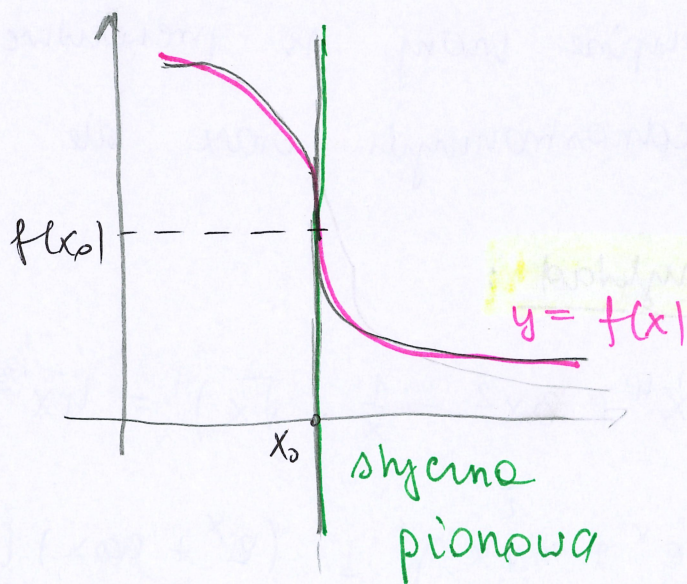 f(x₀)
y = f(x)
x₀
styczna
pionowa